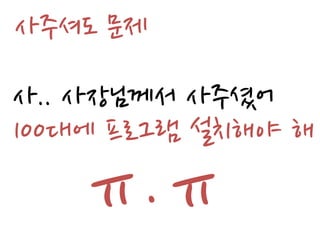 사주셔도 문제
사.. 사장님께서 사주셨어
100대에 프로그램 설치해야 해
ㅠ.ㅠ